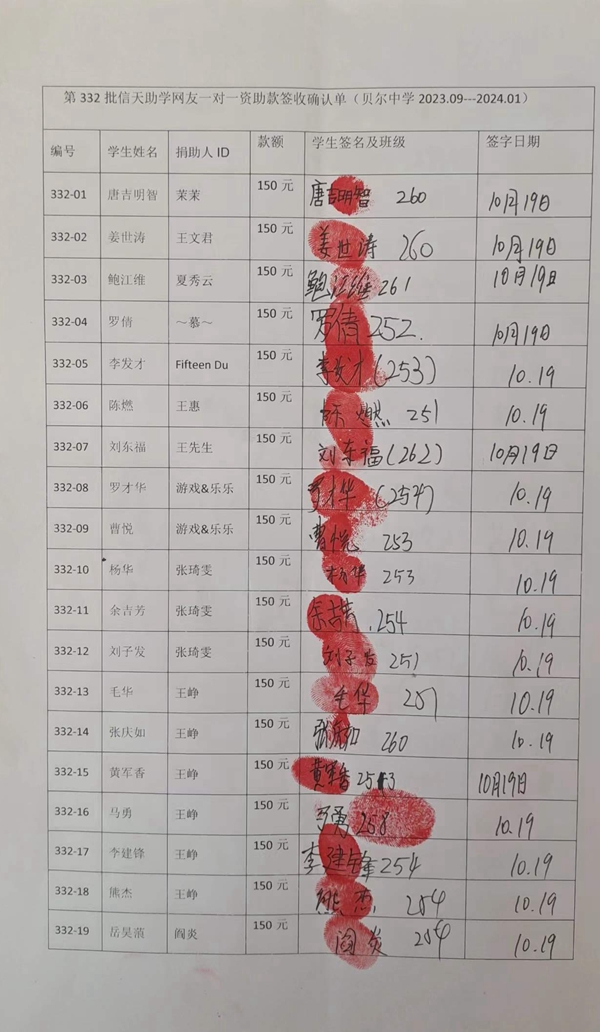 第 332 批信天助学网友一对一资助款签收确认单（贝尔中学 2023.09---2024.01）
编号 学生姓名 捐助人 ID 款额 学生签名及班级 签字日期
332-01 唐吉明智 茉茉 150 元 唐吉明智 260 10月19日
332-02 姜世涛 王文君 150 元 姜世涛 260 10月19日
332-03 鲍江维 夏秀云 150 元 鲍江维 261 10月19日
332-04 罗倩 ～慕～ 150 元 罗倩 252. 10月19日
332-05 李发才 Fifteen Du 150 元 李发才 (253) 10.19
332-06 陈燃 王惠 150 元 陈燃 251 10.19
332-07 刘东福 王先生 150 元 刘东福 (262) 10月19日
332-08 罗才华 游戏&乐乐 150 元 罗才华 (254) 10.19
332-09 曹悦 游戏&乐乐 150 元 曹悦 253 10.19
332-10 杨华 张琦雯 150 元 杨华 253 10.19
332-11 余吉芳 张琦雯 150 元 余吉芳 .254 10.19
332-12 刘子发 张琦雯 150 元 刘子发 251 10.19
332-13 毛华 王峥 150 元 毛华 251 10.19
332-14 张庆如 王峥 150 元 张庆如 260 10.19
332-15 黄军香 王峥 150 元 黄军香 10月19日
332-16 马勇 王峥 150 元 马勇 258 10.19
332-17 李建锋 王峥 150 元 李建锋 254 10.19
332-18 熊杰 王峥 150 元 熊杰 254 10.19
332-19 岳昊 阎炎 150 元 阎炎 254 10.19